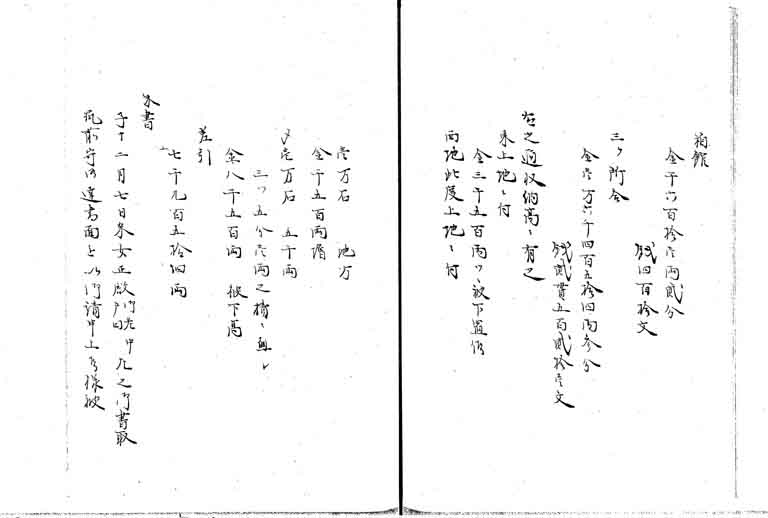 箱館
金千六百拾壱両弐分
銭四百拾文
三ヶ所合
金壱万六千四百五拾四両参分
銭弐貫五百弐拾壱文
右之通収納高ニ有之
未上地ニ付
金三千五百両ツヽ被下置候
両地此度上地ニ付
壱万石 地方
金千五百両増
〆壱万石 五千両
三ツ五分壱両之積ニ無
金八千五百両 被下高
差引
七千九百五拾四両
朱書
子十二月七日
筑前守御達書面を以御請申上候様被